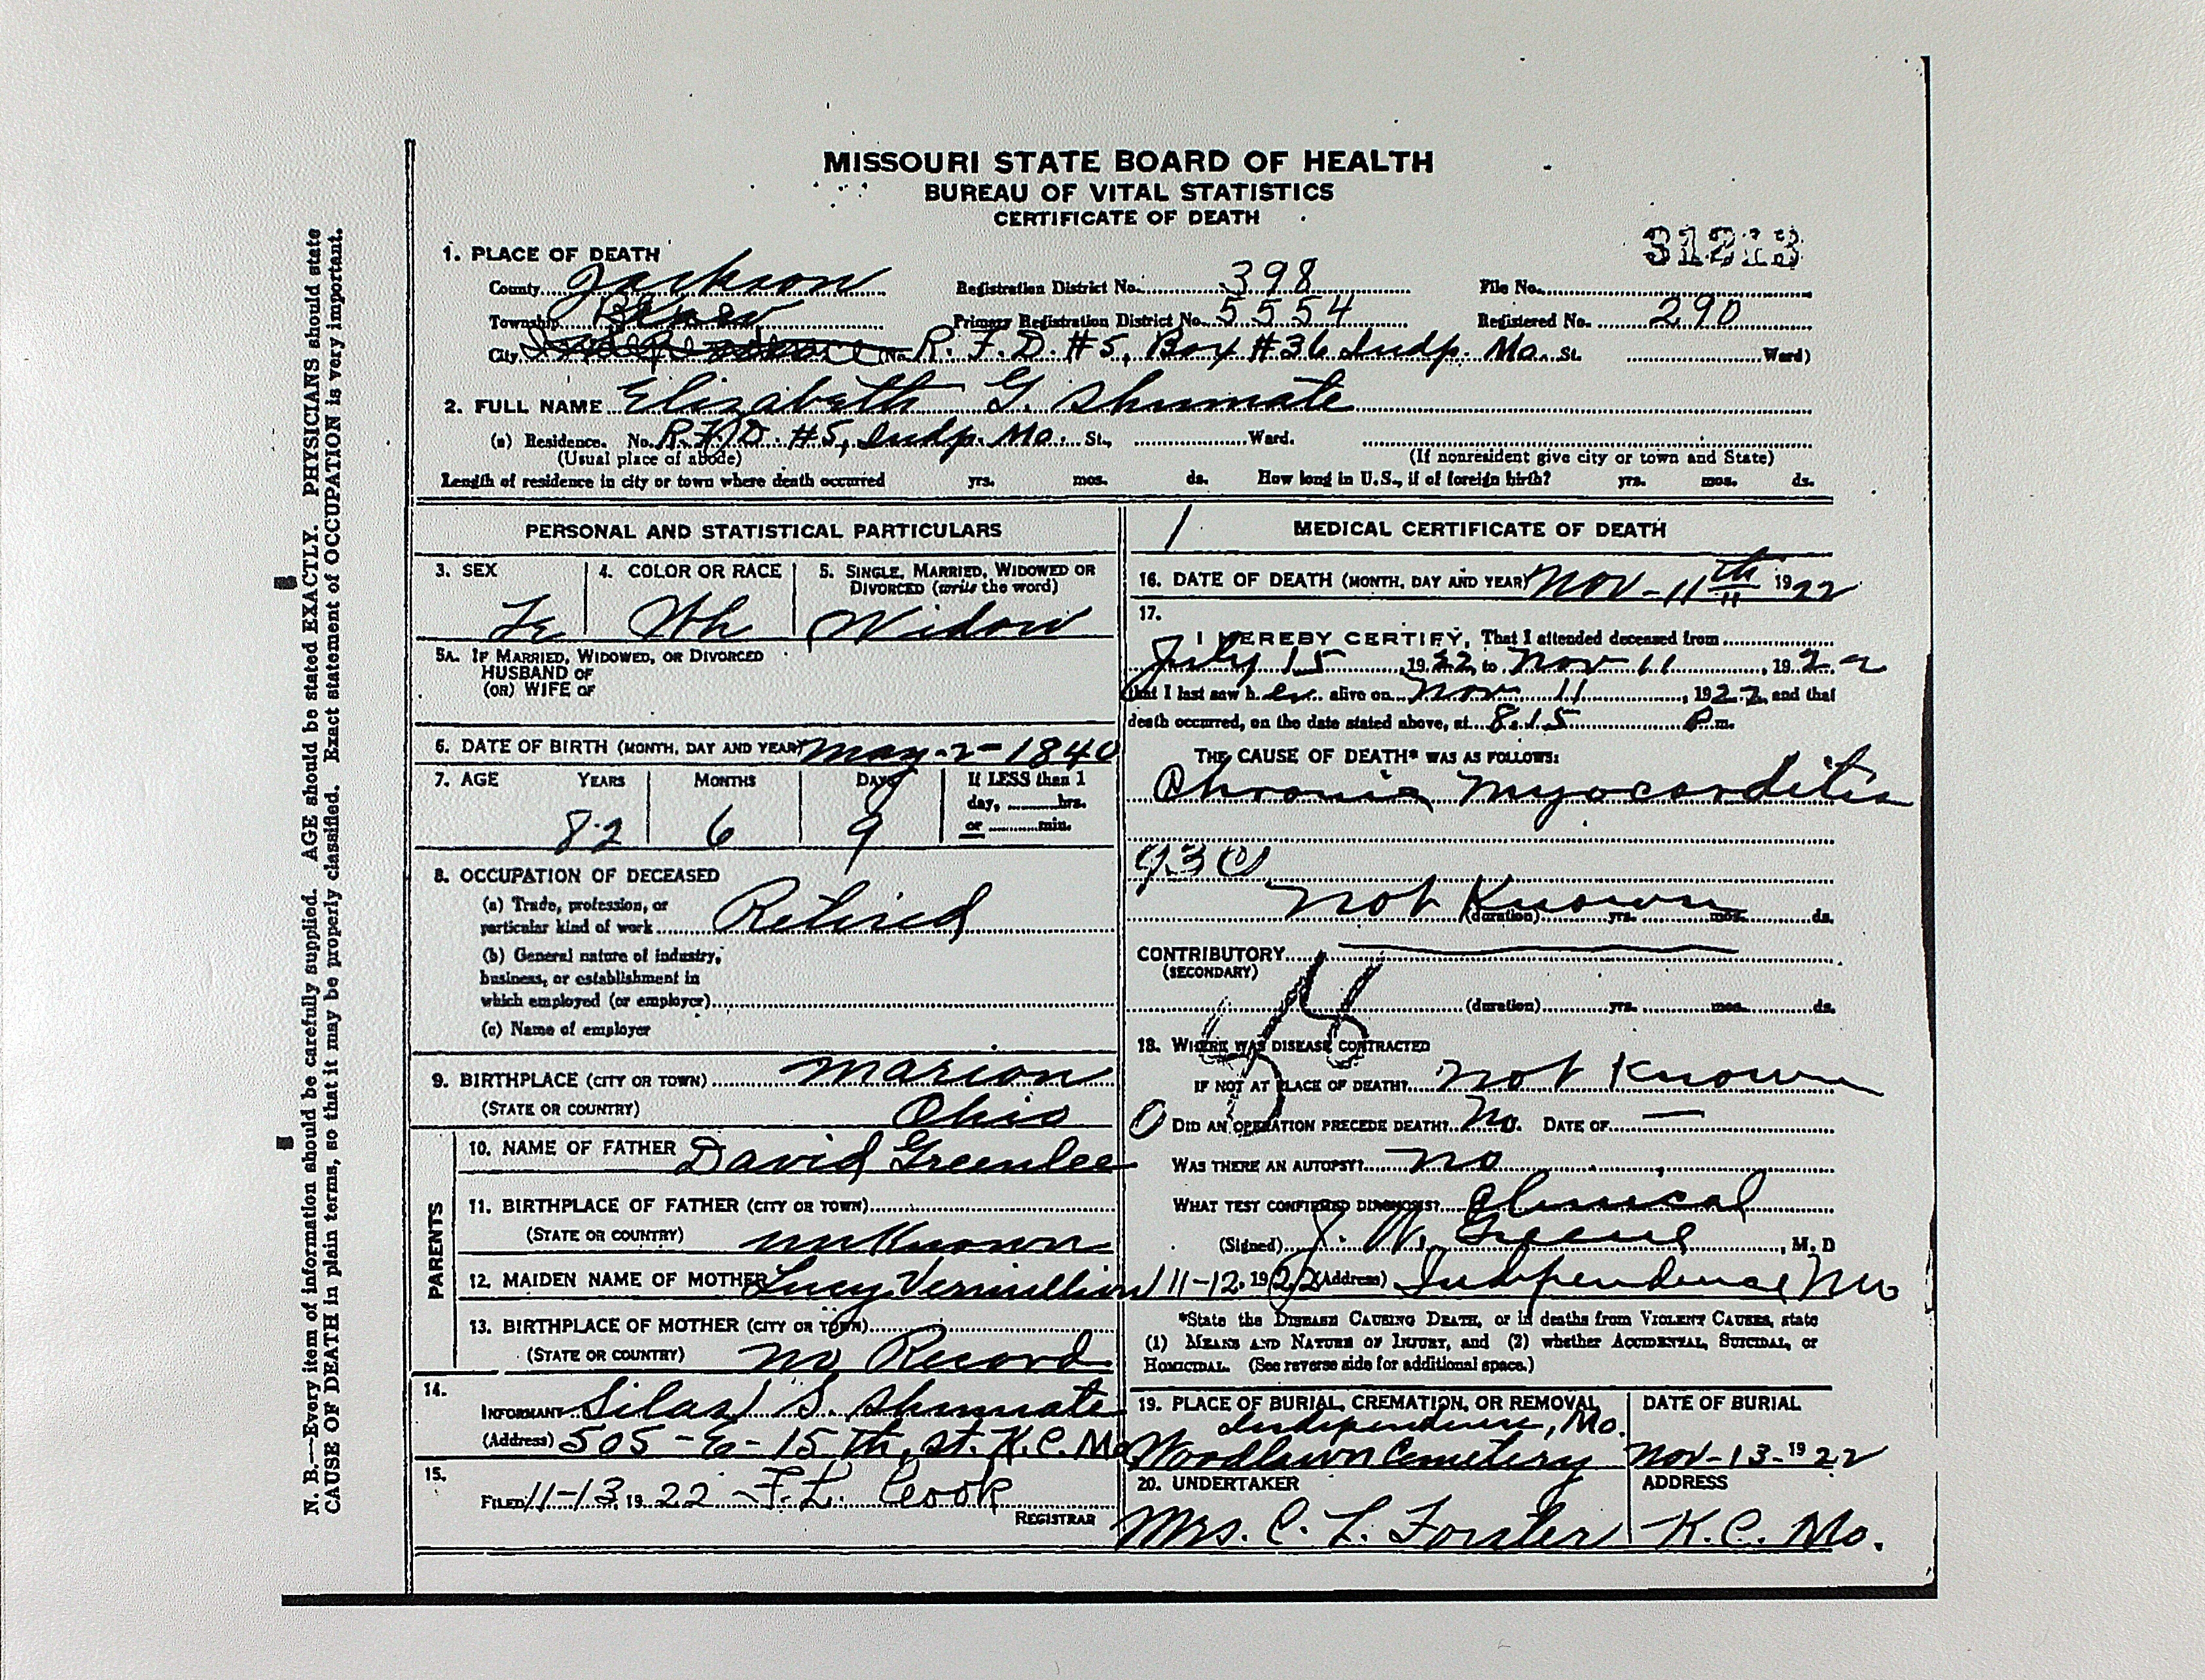 MISSOURI STATE BOARD OF HEALTH
BUREAU OF VITAL STATISTICS
CERTIFICATE OF DEATH
1. PLACE OF DEATH
County Jackson Registration District No. 398 File No.
Township Primary Registration District No. 5554 Registered No. 290
City Independence (No. R.F.D. #5, Box #36 Indp. Mo. St. Ward)
2. FULL NAME Elizabeth G. Shumate
(a) Residence. No. R.F.D. #5, Indp. Mo. St., Ward.
(Usual place of abode) (If nonresident give city or town and State)
Length of residence in city or town where death occurred yrs. mos. ds. How long in U.S., if of foreign birth? yrs. mos. ds.
PERSONAL AND STATISTICAL PARTICULARS
3. SEX 4. COLOR OR RACE 5. SINGLE, MARRIED, WIDOWED OR
DIVORCED (write the word)
Fe Wh Widow
5A. IF MARRIED, WIDOWED, OR DIVORCED
HUSBAND OF
(OR) WIFE OF
6. DATE OF BIRTH (MONTH, DAY AND YEAR) May-2-1840
7. AGE YEARS MONTHS DAYS If LESS than 1
day, hrs.
82 6 9 or min.
8. OCCUPATION OF DECEASED
(a) Trade, profession, or
particular kind of work Retired
(b) General nature of industry,
business, or establishment in
which employed (or employer)
(c) Name of employer
9. BIRTHPLACE (CITY OR TOWN) Marion
(STATE OR COUNTRY) Ohio
PARENTS
10. NAME OF FATHER David Greenlee
11. BIRTHPLACE OF FATHER (CITY OR TOWN)
(STATE OR COUNTRY) unknown
12. MAIDEN NAME OF MOTHER Lucy Vermillion
13. BIRTHPLACE OF MOTHER (CITY OR TOWN)
(STATE OR COUNTRY) no Record
14.
INFORMANT Silas S. Shumate
(Address) 505-E-15th, St. K.C. Mo
15.
FILED 11-13 1922 F.L. Cook
REGISTRAR
MEDICAL CERTIFICATE OF DEATH
16. DATE OF DEATH (MONTH, DAY AND YEAR) Nov-11th 1922
17.
I HEREBY CERTIFY, That I attended deceased from
July 15, 1922, to Nov 11, 1922
that I last saw her alive on Nov 11, 1922, and that
death occurred, on the date stated above, at 8.15 P.m.
THE CAUSE OF DEATH* WAS AS FOLLOWS:
Chronic Myocarditis
not Known (duration) yrs. mos. ds.
CONTRIBUTORY
(SECONDARY)
(duration) yrs. mos. ds.
18. WHERE WAS DISEASE CONTRACTED
IF NOT AT PLACE OF DEATH? not Known
DID AN OPERATION PRECEDE DEATH? No. DATE OF —
WAS THERE AN AUTOPSY? no
WHAT TEST CONFIRMED DIAGNOSIS? Clinical
(Signed) J. W. Greene, M. D
11-12, 1922 (Address) Independence Mo
*State the DISEASE CAUSING DEATH, or in deaths from VIOLENT CAUSES, state
(1) MEANS AND NATURE OF INJURY, and (2) whether ACCIDENTAL, SUICIDAL, or
HOMICIDAL. (See reverse side for additional space.)
19. PLACE OF BURIAL, CREMATION, OR REMOVAL DATE OF BURIAL
Independence, Mo.
Woodlawn Cemetery Nov-13-1922
20. UNDERTAKER ADDRESS
Mrs. C. L. Forster K.C. Mo.
N. B.—Every item of information should be carefully supplied. AGE should be stated EXACTLY. PHYSICIANS should state
CAUSE OF DEATH in plain terms, so that it may be properly classified. Exact statement of OCCUPATION is very important.